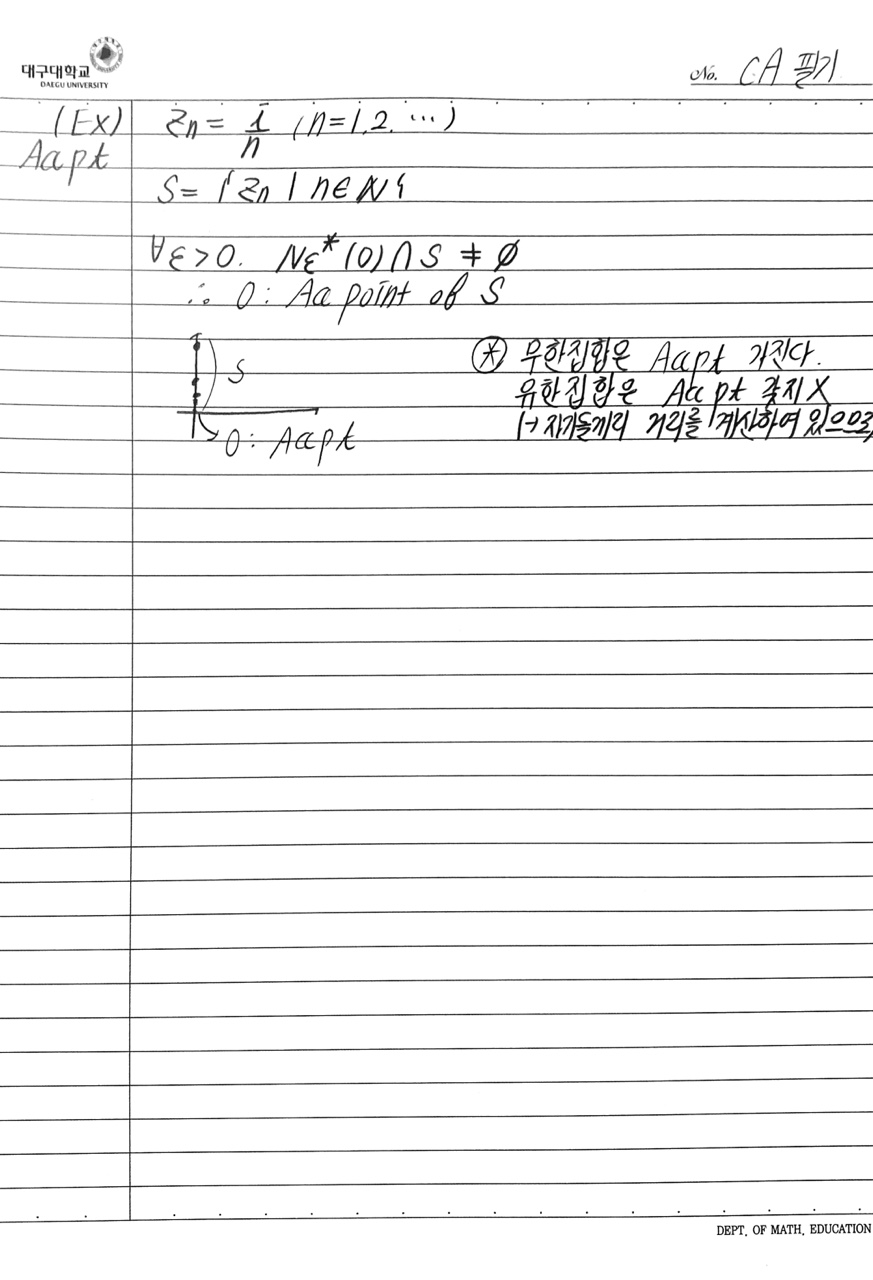 대구대학교
DAEGU UNIVERSITY
No. CA 필기
(Ex) Zn = i/n (n=1,2,…)
Aapt
S = { Zn | n∈ℕ }
∀ε>0. Nε*(0)∩S ≠ ∅
∴ 0: Aa point of S
S
0: Aapt
⊛ 무한집합은 Aapt 가진다.
유한집합은 Aapt 갖지 X
↦ 자기들끼리 거리를 계산하여 있으므로
DEPT. OF MATH. EDUCATION